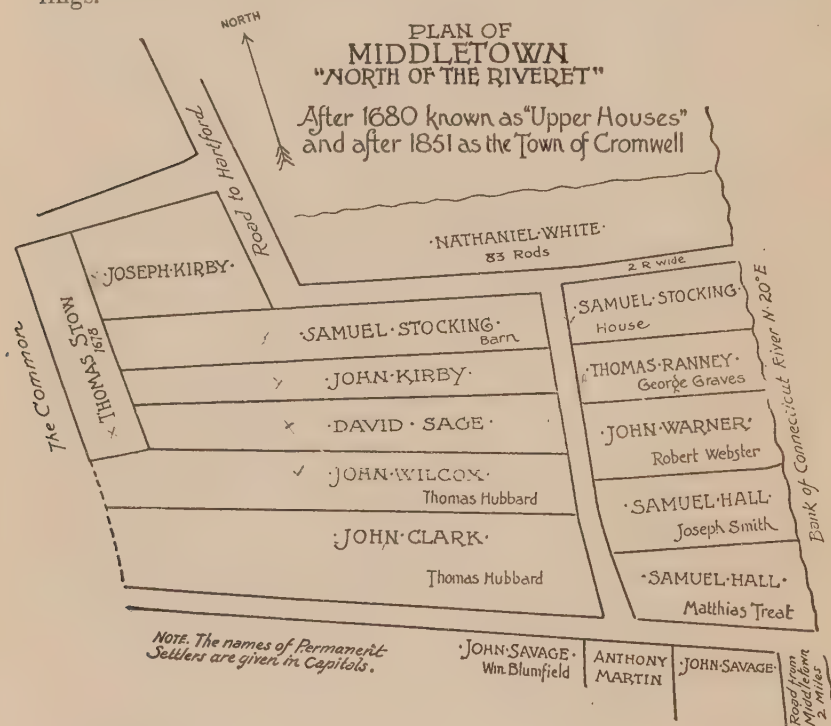 ings.
NORTH
PLAN OF
MIDDLETOWN
"NORTH OF THE RIVERET"
After 1680 known as "Upper Houses"
and after 1851 as the Town of Cromwell
Road to Hertford
·NATHANIEL·WHITE·
83 Rods
2 R wide
·JOSEPH·KIRBY·
The Common
THOMAS STOW
1678
·SAMUEL·STOCKING·
Barn
·JOHN·KIRBY·
·DAVID·SAGE·
·JOHN·WILCOX·
Thomas Hubbard
·JOHN·CLARK·
Thomas Hubbard
·SAMUEL·STOCKING·
House
·THOMAS·RANNEY·
George Graves
·JOHN·WARNER·
Robert Webster
·SAMUEL·HALL·
Joseph Smith
·SAMUEL·HALL·
Matthias Treat
Bank of Connecticut River N. 20° E.
NOTE. The names of Permanent
Settlers are given in Capitals.
·JOHN·SAVAGE·
Wm Blumfield
ANTHONY
MARTIN
·JOHN·SAVAGE·
Road from
Middletown
2 Miles